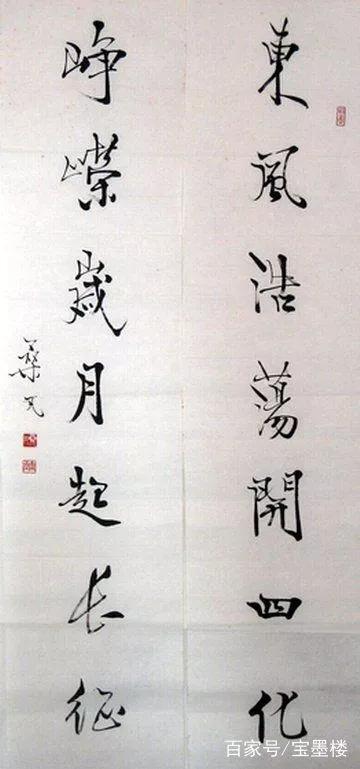 東風浩蕩開四化
崢嶸歲月起長征
百家号/宝墨楼